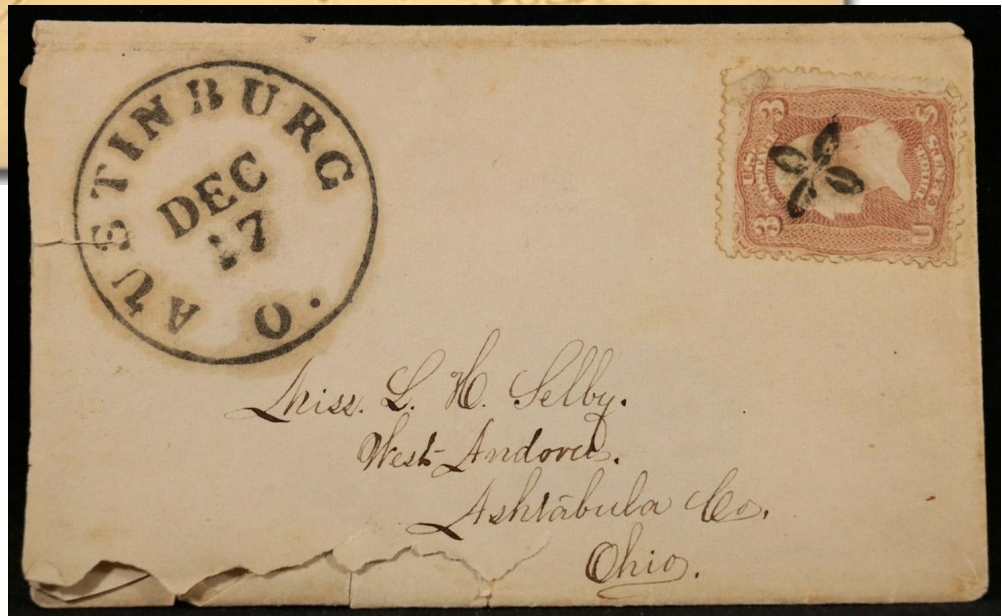 AUSTINBURG O.
DEC
17
3 3
U.S. POSTAGE
THREE CENTS
U S
Miss. L. H. Selby.
West Andover.
Ashtabula Co.
Ohio.